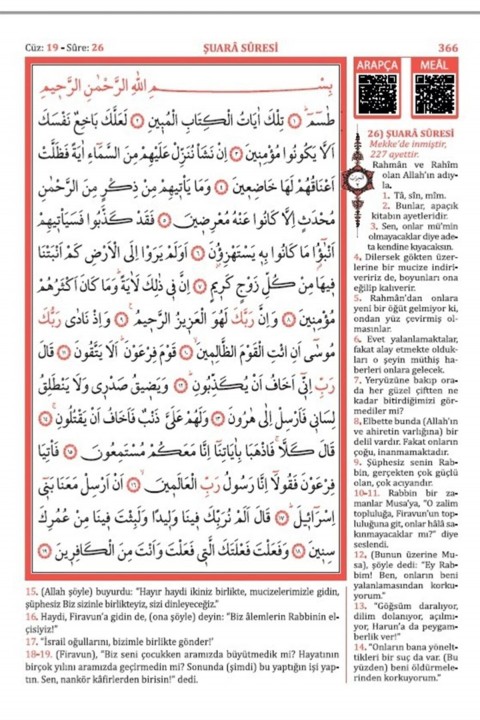 Cüz: 19 - Sûre: 26
ŞUARÂ SÛRESİ
366
بِسْمِ اللّٰهِ الرَّحْمٰنِ الرَّحِيمِ
طٰسٓمٓ ﴿١﴾ تِلْكَ اٰيَاتُ الْكِتَابِ الْمُبِينِ ﴿٢﴾ لَعَلَّكَ بَاخِعٌ نَفْسَكَ
اَلَّا يَكُونُوا مُؤْمِنِينَ ﴿٣﴾ اِنْ نَشَأْ نُنَزِّلْ عَلَيْهِمْ مِنَ السَّمَٓاءِ اٰيَةً فَظَلَّتْ
اَعْنَاقُهُمْ لَهَا خَاضِعِينَ ﴿٤﴾ وَمَا يَأْتِيهِمْ مِنْ ذِكْرٍ مِنَ الرَّحْمٰنِ
مُحْدَثٍ اِلَّا كَانُوا عَنْهُ مُعْرِضِينَ ﴿٥﴾ فَقَدْ كَذَّبُوا فَسَيَأْتِيهِمْ
اَنْبٰٓؤُ۬ا مَا كَانُوا بِهِ يَسْتَهْزِؤُ۫نَ ﴿٦﴾ اَوَلَمْ يَرَوْا اِلَى الْاَرْضِ كَمْ اَنْبَتْنَا
فِيهَا مِنْ كُلِّ زَوْجٍ كَرِيمٍ ﴿٧﴾ اِنَّ فِي ذٰلِكَ لَاٰيَةً وَمَا كَانَ اَكْثَرُهُمْ
مُؤْمِنِينَ ﴿٨﴾ وَاِنَّ رَبَّكَ لَهُوَ الْعَزِيزُ الرَّحِيمُ ﴿٩﴾ وَاِذْ نَادٰى رَبُّكَ
مُوسٰٓى اَنِ ائْتِ الْقَوْمَ الظَّالِمِينَ ﴿١٠﴾ قَوْمَ فِرْعَوْنَ اَلَا يَتَّقُونَ ﴿١١﴾ قَالَ
رَبِّ اِنِّٓي اَخَافُ اَنْ يُكَذِّبُونِ ﴿١٢﴾ وَيَضِيقُ صَدْرِي وَلَا يَنْطَلِقُ
لِسَانِي فَاَرْسِلْ اِلٰى هٰرُونَ ﴿١٣﴾ وَلَهُمْ عَلَيَّ ذَنْبٌ فَاَخَافُ اَنْ يَقْتُلُونِ ﴿١٤﴾
قَالَ كَلَّا فَاذْهَبَا بِاٰيَاتِنَٓا اِنَّا مَعَكُمْ مُسْتَمِعُونَ ﴿١٥﴾ فَأْتِيَا
فِرْعَوْنَ فَقُولَٓا اِنَّا رَسُولُ رَبِّ الْعَالَمِينَ ﴿١٦﴾ اَنْ اَرْسِلْ مَعَنَا بَنِٓي
اِسْرَٓائِلَ ﴿١٧﴾ قَالَ اَلَمْ نُرَبِّكَ فِينَا وَلِيدًا وَلَبِثْتَ فِينَا مِنْ عُمُرِكَ
سِنِينَ ﴿١٨﴾ وَفَعَلْتَ فَعْلَتَكَ الَّتِي فَعَلْتَ وَاَنْتَ مِنَ الْكَافِرِينَ ﴿١٩﴾
15. (Allah şöyle) buyurdu: "Hayır haydi ikiniz birlikte, mucizelerimizle gidin,
şüphesiz Biz sizinle birlikteyiz, sizi dinleyeceğiz."
16. Haydi, Firavun'a gidin de, (ona şöyle) deyin: "Biz âlemlerin Rabbinin el-
çisiyiz!"
17. "İsrail oğullarını, bizimle birlikte gönder!"
18-19. (Firavun), "Biz seni çocukken aramızda büyütmedik mi? Hayatının
birçok yılını aramızda geçirmedin mi? Sonunda (şimdi) bu yaptığın işi yap-
tın. Sen, nankör kâfirlerden birisin!" dedi.
ARAPÇA
MEÂL
26) ŞUARÂ SÛRESİ
Mekke'de inmiştir,
227 ayettir.
Rahmân ve Rahîm
olan Allah'ın adıy-
la.
1. Tâ, sîn, mîm.
2. Bunlar, apaçık
kitabın ayetleridir.
3. Sen, onlar mü'min
olmayacaklar diye ade-
ta kendine kıyacaksın.
4. Dilersek gökten üzer-
lerine bir mucize indiri-
veririz de, boyunları ona
eğilip kalıverir.
5. Rahmân'dan onlara
yeni bir öğüt gelmiyor ki,
ondan yüz çevirmiş ol-
masınlar.
6. Evet yalanlamaktalar,
fakat alay etmekte olduk-
ları o şeyin müthiş ha-
berleri onlara gelecek.
7. Yeryüzüne bakıp ora-
da her güzel çiftten ne
kadar bitirdiğimizi gör-
mediler mi?
8. Elbette bunda (Allah'ın
ve ahiretin varlığına) bir
delil vardır. Fakat onların
çoğu, inanmamaktadır.
9. Şüphesiz senin Rab-
bin, gerçekten çok güçlü
olan, çok acıyandır.
10-11. Rabbin bir za-
manlar Musa'ya, "O zalim
topluluğa, Firavun'un top-
luluğuna git, onlar hâlâ sa-
kınmayacaklar mı?" diye
seslendi.
12. (Bunun üzerine Mu-
sa), şöyle dedi: "Ey Rab-
bim! Ben, onların beni
yalanlamasından korku-
yorum."
13. "Göğsüm daralıyor,
dilim dolanıyor, açılmı-
yor, Harun'a da peygam-
berlik ver!"
14. "Onların bana yönelt-
tikleri bir suç da var. (Bu
yüzden) beni öldürmele-
rinden korkuyorum."